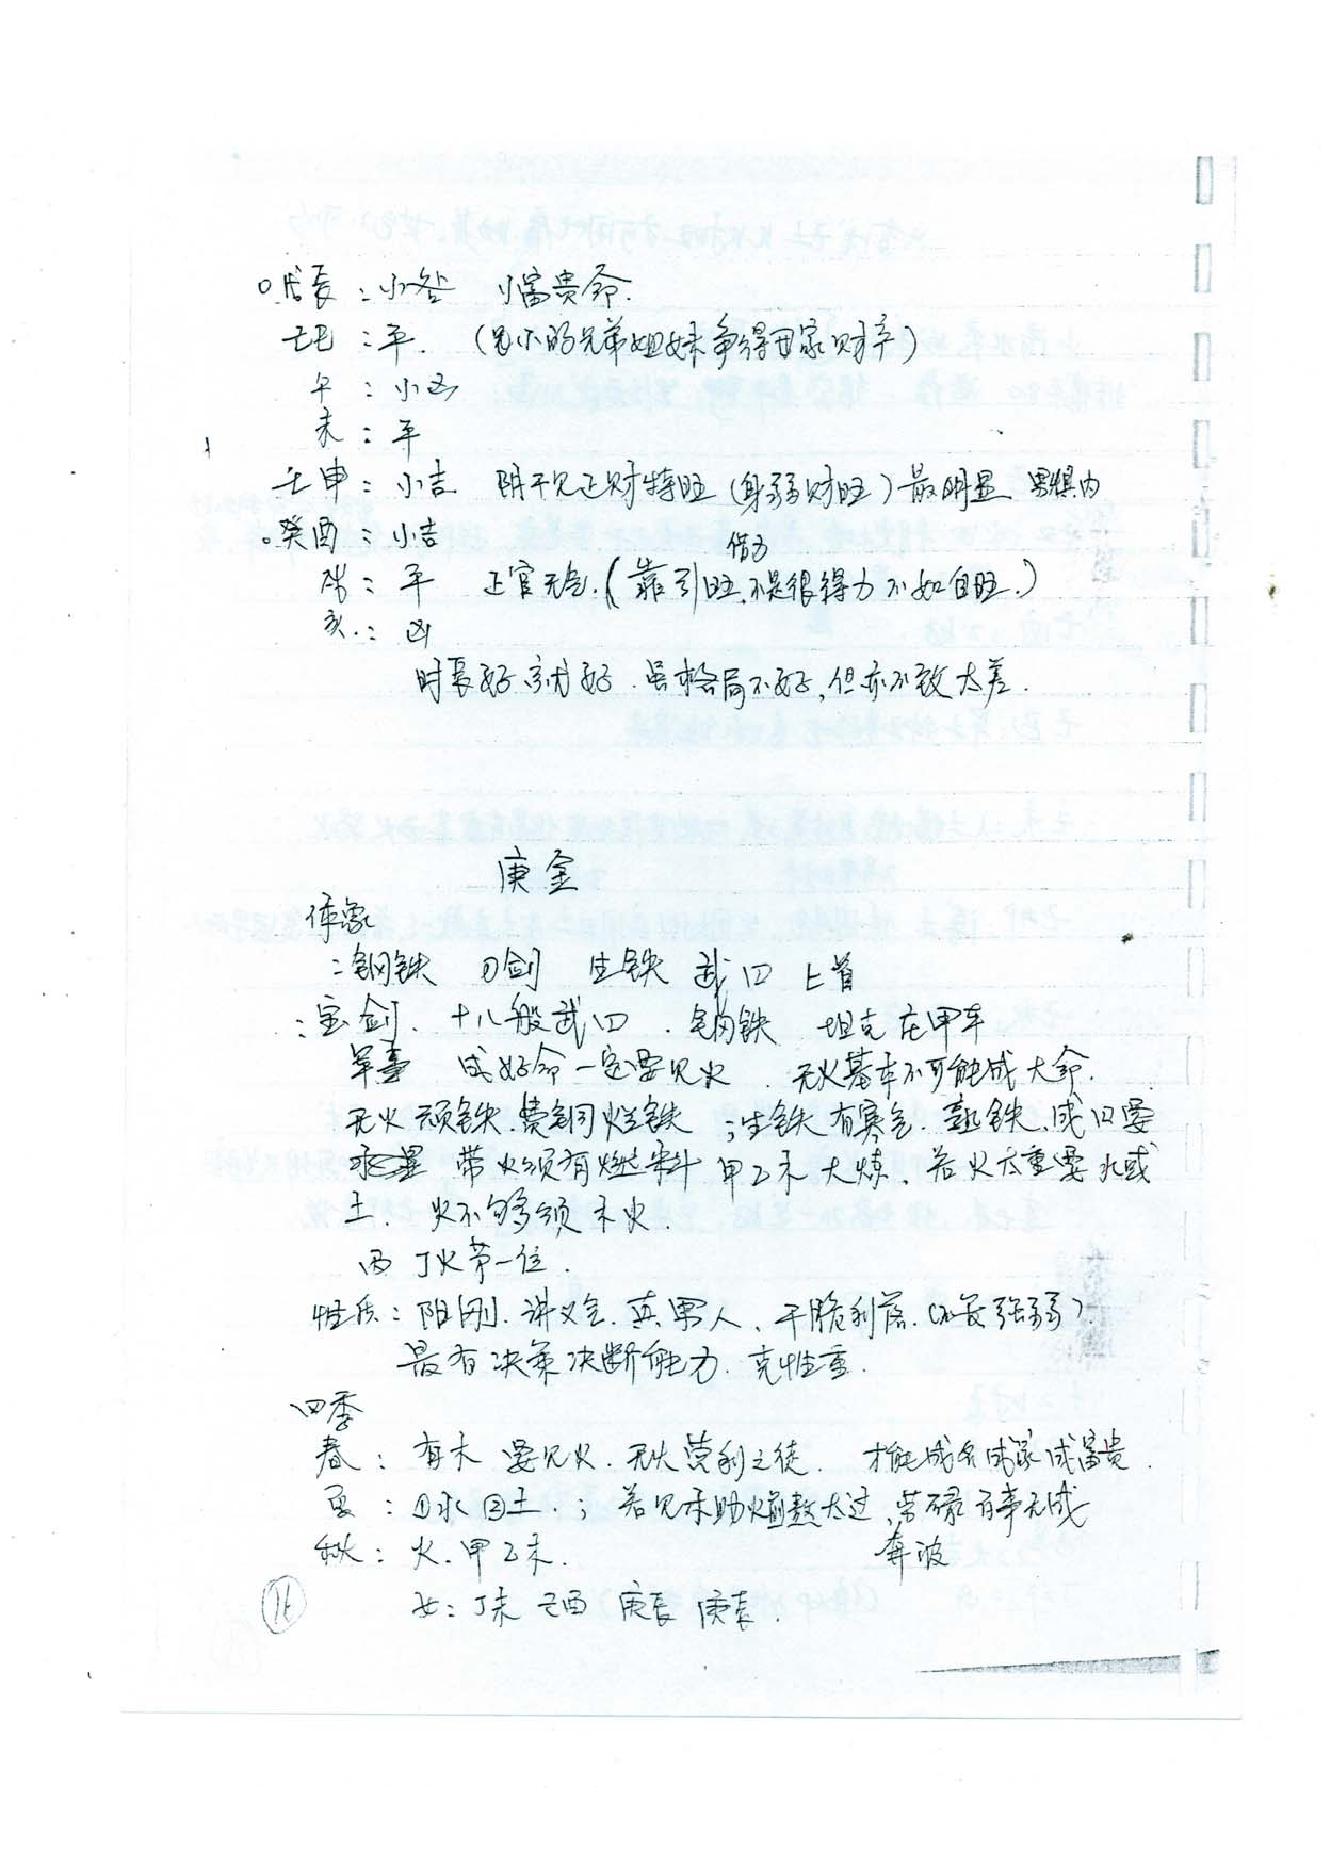 戊辰：小吉 小富贵命.
己巳：平. （兄弟的兄弟姐妹争得田家财辛）
午：小凶
未：平
壬申：小吉 阴干见正财特旺（身弱财旺）最明显 男惧内
癸酉：小吉
借力
戌：平 正官无气.（靠引旺,不是很得力不如自旺.）
亥.：凶
时辰好就好.虽格局不好,但亦不致太差.
庚金
体象
：钢铁 刀剑 生铁 武口 上首
：宝剑、十八般武口.钢铁 坦克在甲车
军事 成好命一定要见火.无火基本不可能成大命.
无火顽铁.费铜烂铁；生铁有寒气.熟铁.成口要
带火须有燃料 甲乙木大炼、若火太重要水或
土. 火不够须木火.
丙丁火第一位.
性质：阳刚.讲义气.真男人、干脆利落.（必须强弱）
最有决策决断能力.克性重.
四季
春：有木 要见火.无火营利之徒. 才能成名成家成富贵.
夏：①水②土.；若见木助火煎熬太过,劳碌百事无成
奔波
秋：火.甲乙木.
女：丁未 己酉 庚辰 庚辰.
16